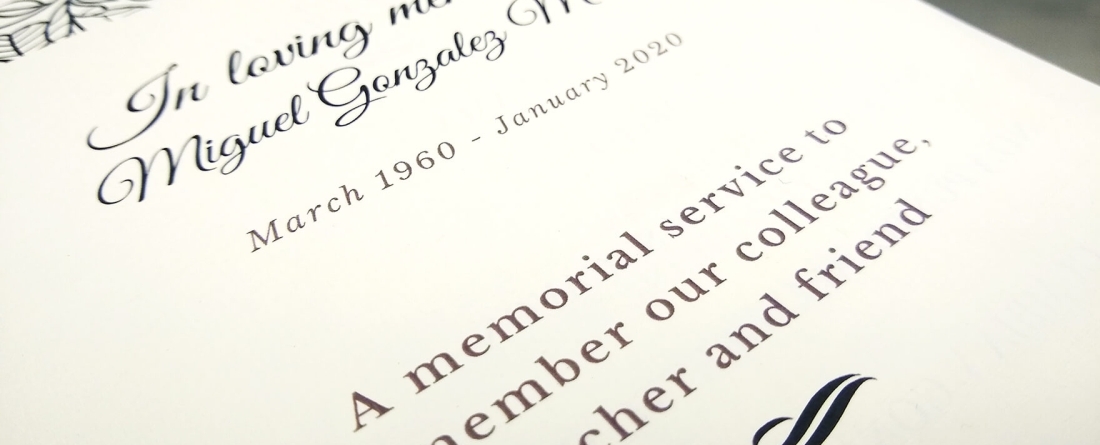 In loving
Miguel Gonzalez
March 1960 - January 2020
A memorial service to
our colleague,
and friend